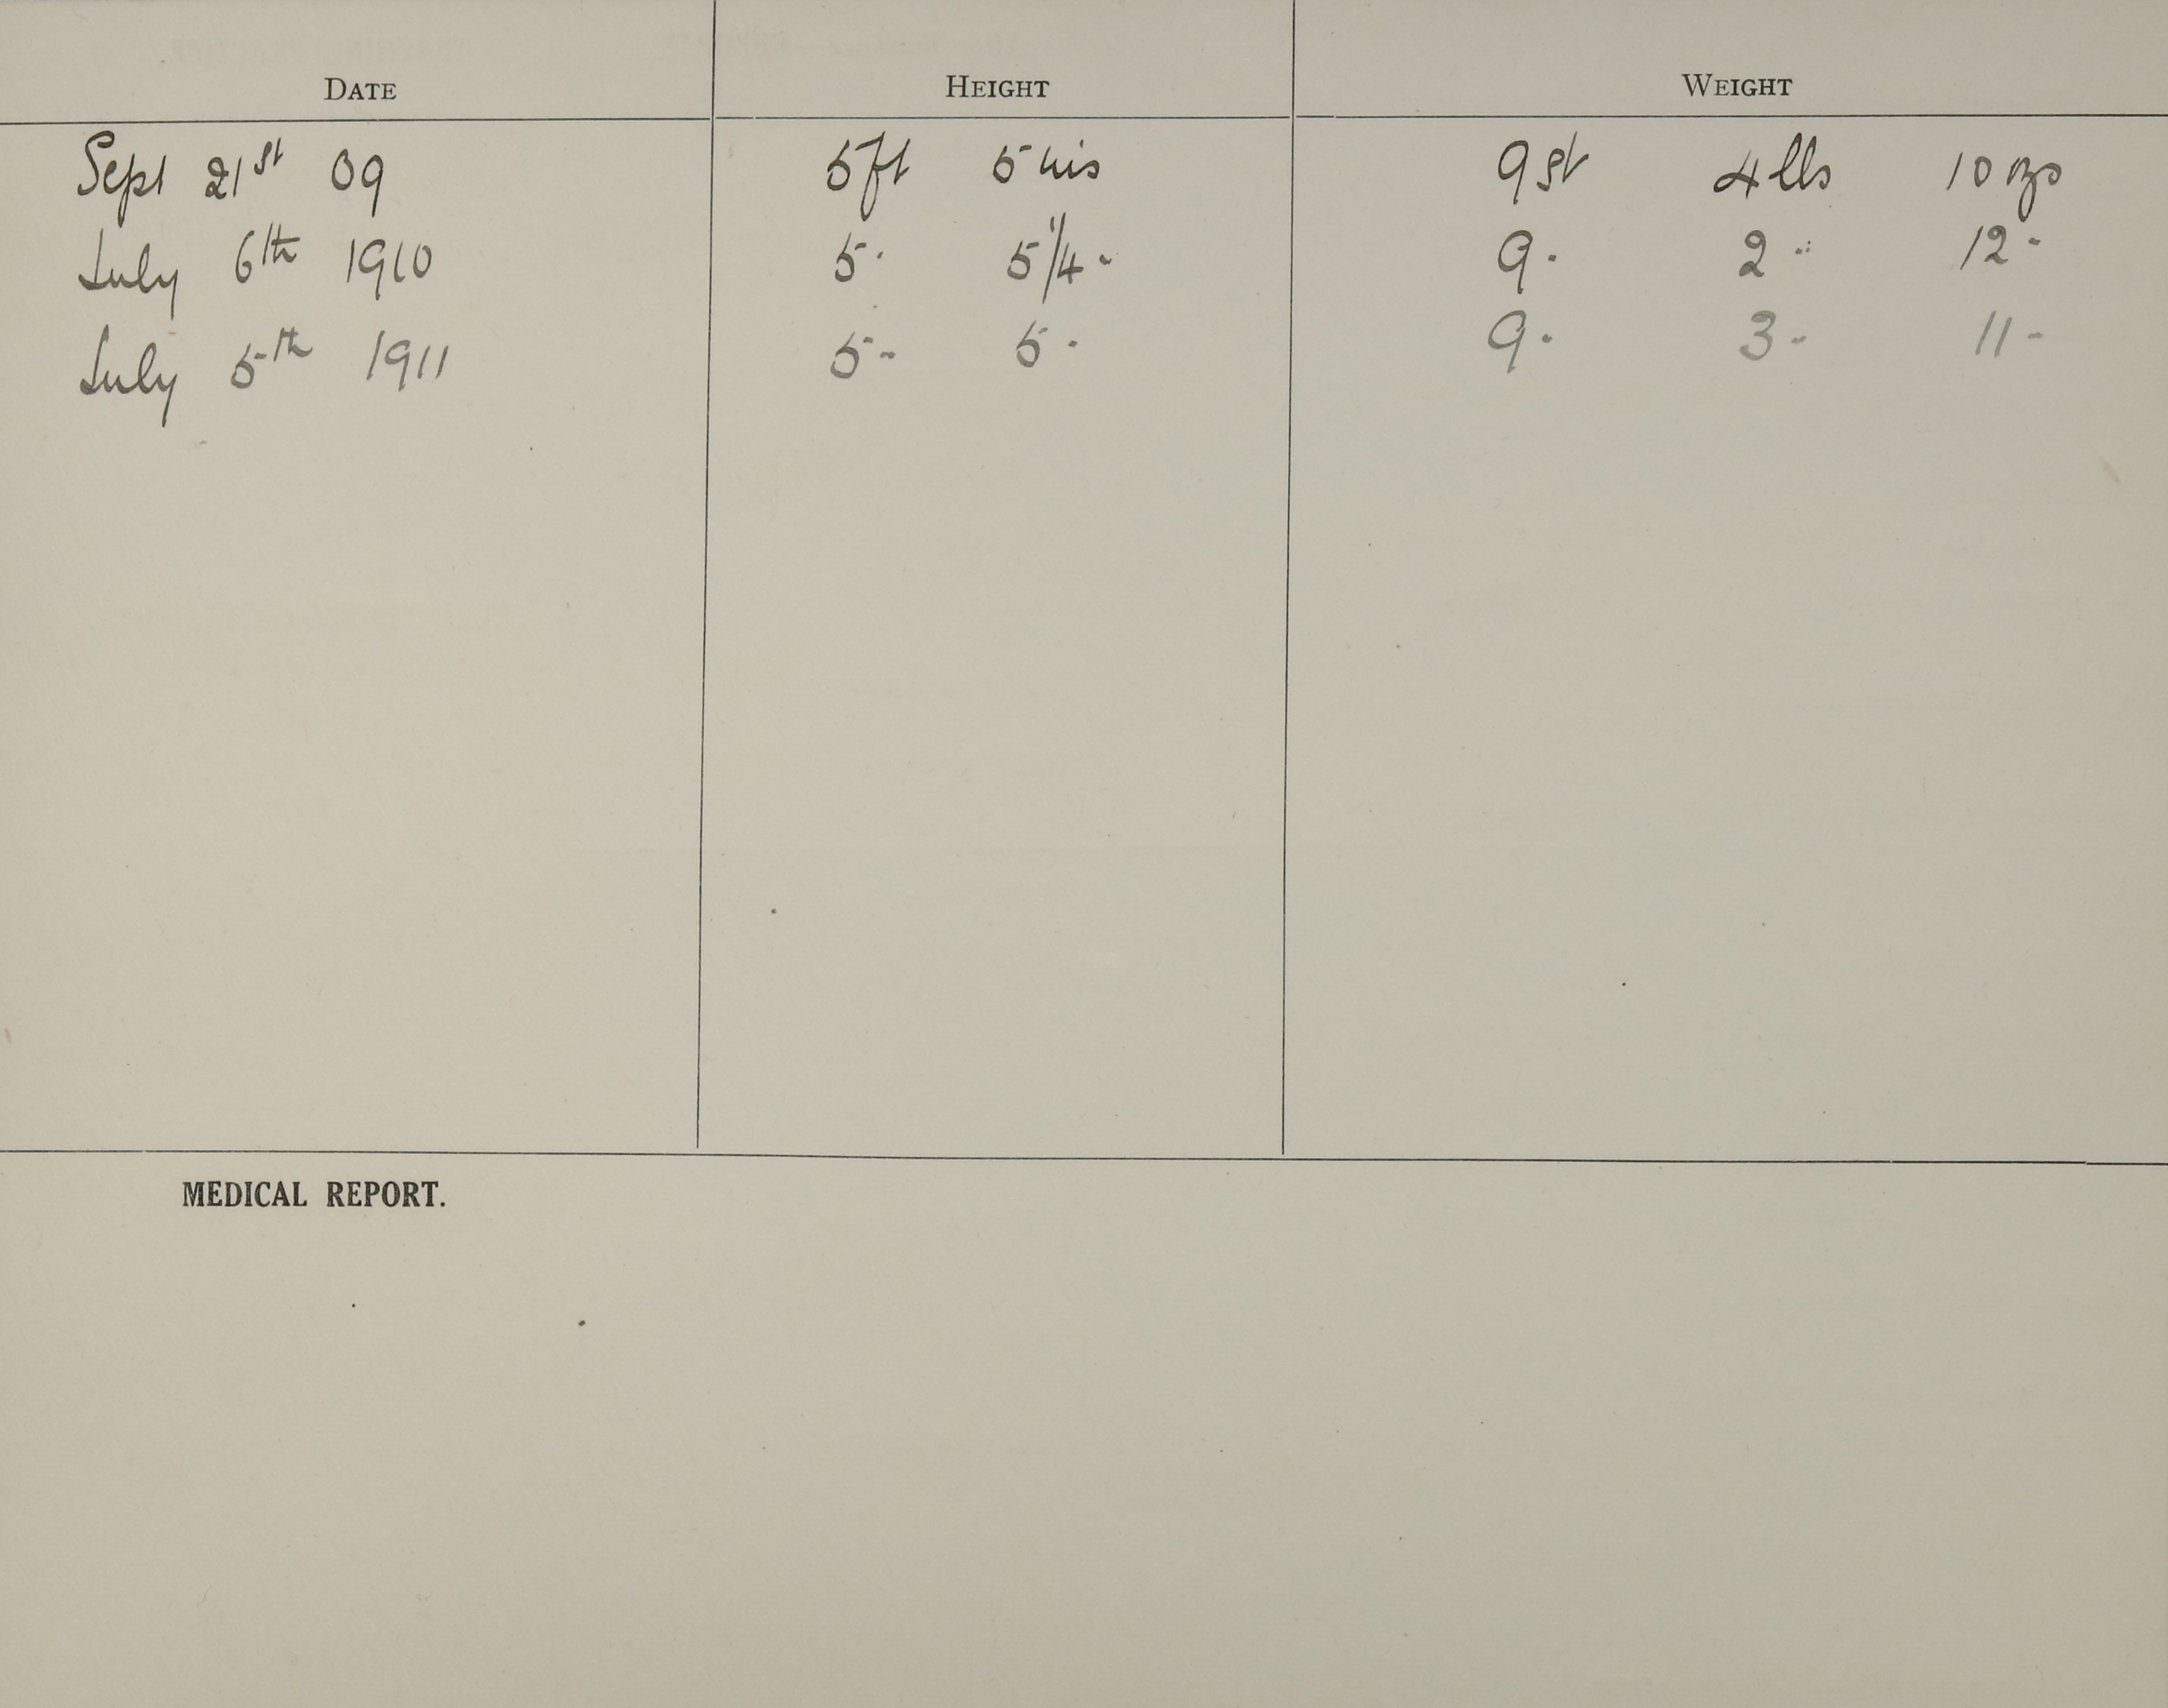 DATE HEIGHT WEIGHT
Sept 21st 09 5ft 5 ins 9 st 4 lbs 10 ozs
July 6th 1910 5 - 5 1/4 - 9 - 2 - 12 -
July 5th 1911 5 - 5 - 9 - 3 - 11 -
MEDICAL REPORT.